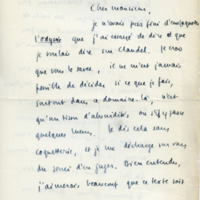 Cher monsieur,
je n'avais pas fini d'emprunter
que j'ai essayé de dire ce que
je voulais dire sur Claudel. Je crois
que vous le savez, il ne m'est jamais
possible de décider si ce que je fais,
surtout dans ce domaine-là, n'est
qu'un tissu d'absurdités, ou s'il y passe
quelques lueurs. Je dis cela sans
coquetterie, et je me décharge sur vous
du souci d'en juger. Bien entendu,
j'aimerais beaucoup que ce texte soit